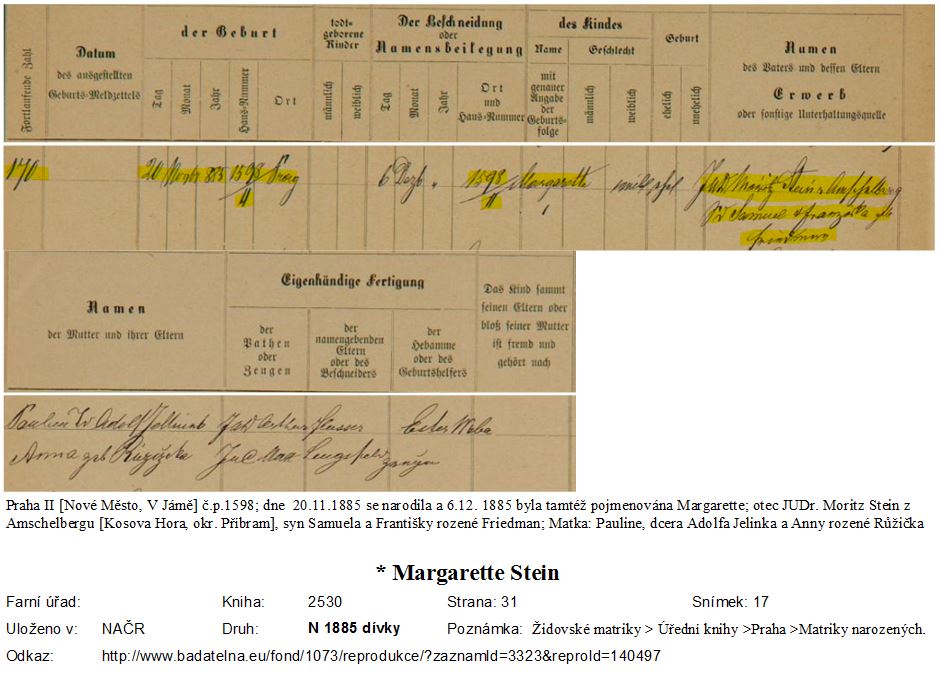 Fortlaufende Zahl
Datum
des ausgestellten
Geburts-Meldzettels
der Geburt
Tag
Monat
Jahr
Haus-Nummer
Ort
todt-
geborene
Kinder
männlich
weiblich
Der Beschneidung
oder
Namensbeilegung
Tag
Monat
Jahr
Ort
und
Haus-Nummer
des Kindes
Name
mit
genauer
Angabe
der
Geburts-
folge
Geschlecht
männlich
weiblich
Geburt
ehelich
unehelich
Namen
des Vaters und dessen Eltern
Erwerb
oder sonstige Unterhaltungsquelle
170 20 885 1598 Prag 6 Dezb " 1598 Margarette Moritz Stein Amschelberg
II II 1 Samuel Franziska geb
Friedmann
Namen
der Mutter und ihrer Eltern
Eigenhändige Fertigung
der
Pathen
oder
Zeugen
der
namengebenden
Eltern
oder des
Beschneiders
der
Hebamme
oder des
Geburtshelfers
Das Kind sammt
seinen Eltern oder
bloß seiner Mutter
ist fremd und
gehört nach
Adolf Ester
Anna geb Max
Praha II [Nové Město, V Jámě] č.p.1598; dne 20.11.1885 se narodila a 6.12. 1885 byla tamtéž pojmenována Margarette; otec JUDr. Moritz Stein z
Amschelbergu [Kosova Hora, okr. Příbram], syn Samuela a Františky rozené Friedman; Matka: Pauline, dcera Adolfa Jelinka a Anny rozené Růžička
* Margarette Stein
Farní úřad: Kniha: 2530 Strana: 31 Snímek: 17
Uloženo v: NAČR Druh: N 1885 dívky Poznámka: Židovské matriky > Úřední knihy >Praha >Matriky narozených.
Odkaz: http://www.badatelna.eu/fond/1073/reprodukce/?zaznamId=3323&reproId=140497